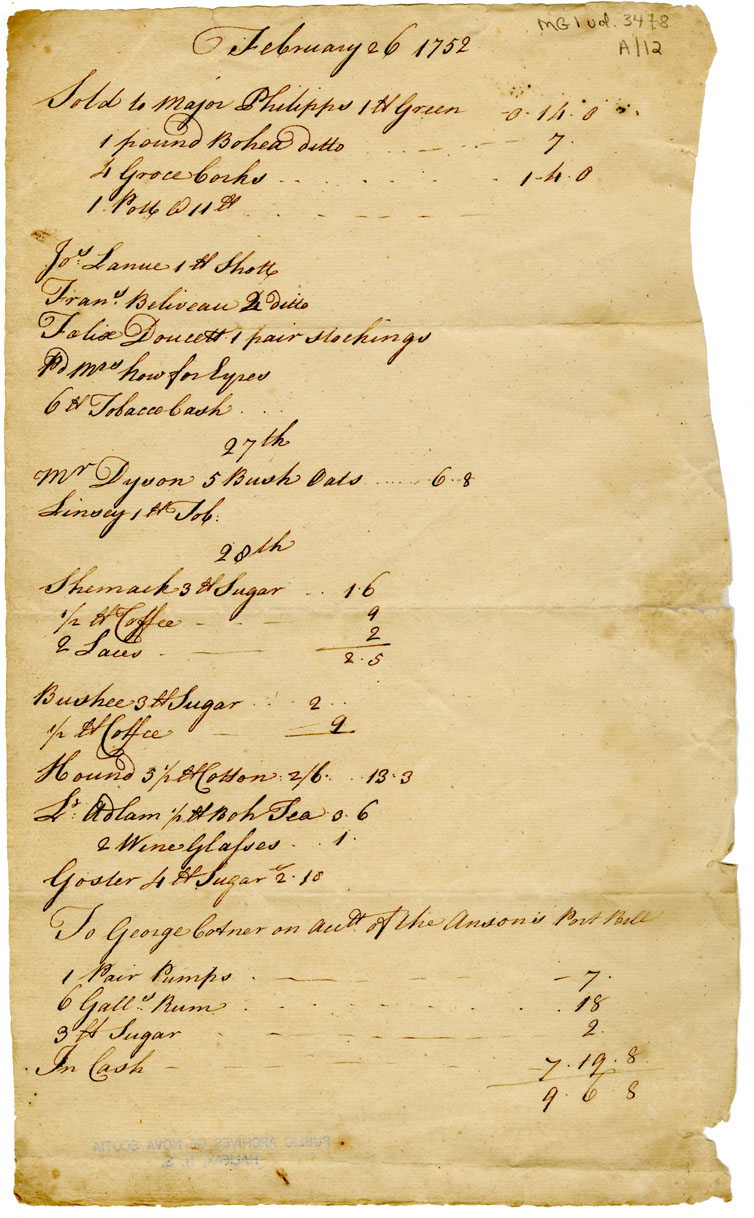 MG1 vol. 3478
A/12
February 26 1752
Sold to Major Philipps 1 tt Green 0. 14. 0
1 pound Bohea ditto 7.
4 Groce Corks 1. 4. 0
1 Pott @ 11tt
Jos. Lanue 1 tt Shott
Frans. Beliveau 2 ditto
Fœlix Doucett 1 pair Stockings
Pd Mrs how for Eyres
6 tt Tobacco Cash
27th
Mr Dyson 5 Bush Oats 6. 8
Linsey 1 tt Tob:
28th
Shemack 3 tt Sugar 1. 6
1/2 tt Coffee 9
2 Laces 2
2. 5
Bushee 3 tt Sugar 2
1/2 tt Coffee 9
Hound 5 1/2 tt Cotton 2/6 13. 3
Lt. Adlam 1/2 tt Boh Tea 3. 6
2 Wine Glasses 1.
Goster 4 tt Sugar 2. 10
To George Cotner on Acctt of the Anson's Port Bill
1 Pair Pumps 7.
6 Galls Rum 18
3 tt Sugar 2.
In Cash 7. 19. 8
9. 6 8
PUBLIC ARCHIVES OF NOVA SCOTIA
HALIFAX, N. S.